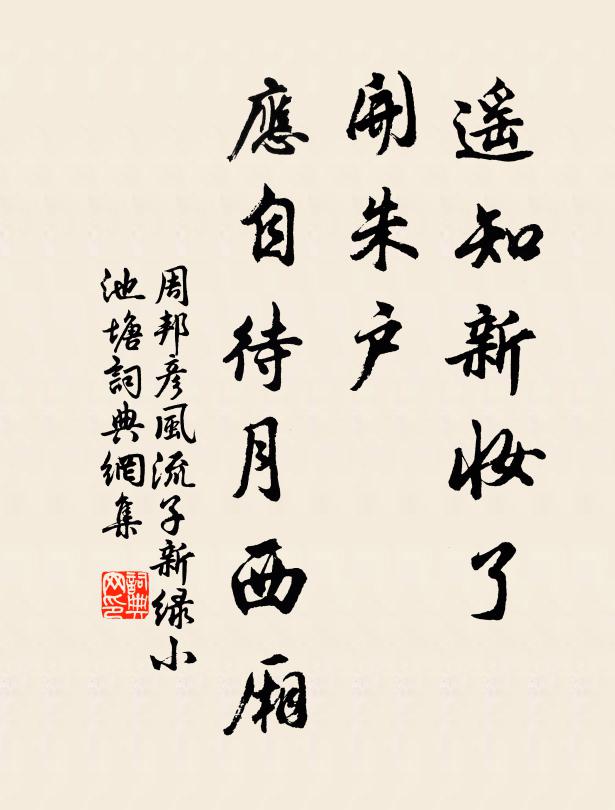 遥知新妆了
開朱户
應自待月西厢
周邦彦風流子新緑小
池塘詞典網集
詞典网印